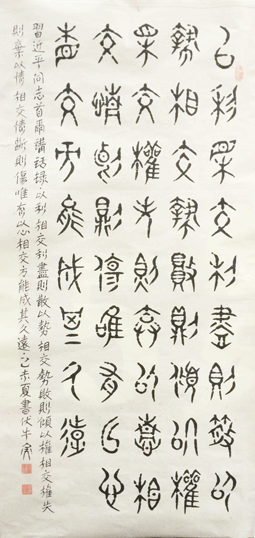 以利相交利盡則散以
勢相交勢敗則傾以權
相交權失則棄以情相
交情斷則傷唯有以心
相交方能成其久遠
習近平同志首爾講話錄以利相交利盡則散以勢相交勢敗則傾以權相交權失
則棄以情相交情斷則傷唯有以心相交方能成其久遠乙未夏書伏牛